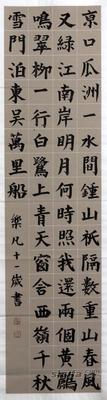 京口瓜洲一水間鍾山祇隔數重山春風
又綠江南岸明月何時照我還兩個黃鸝
鳴翠柳一行白鷺上青天窗含西嶺千秋
雪門泊東吳萬里船
樂凡十一歲書